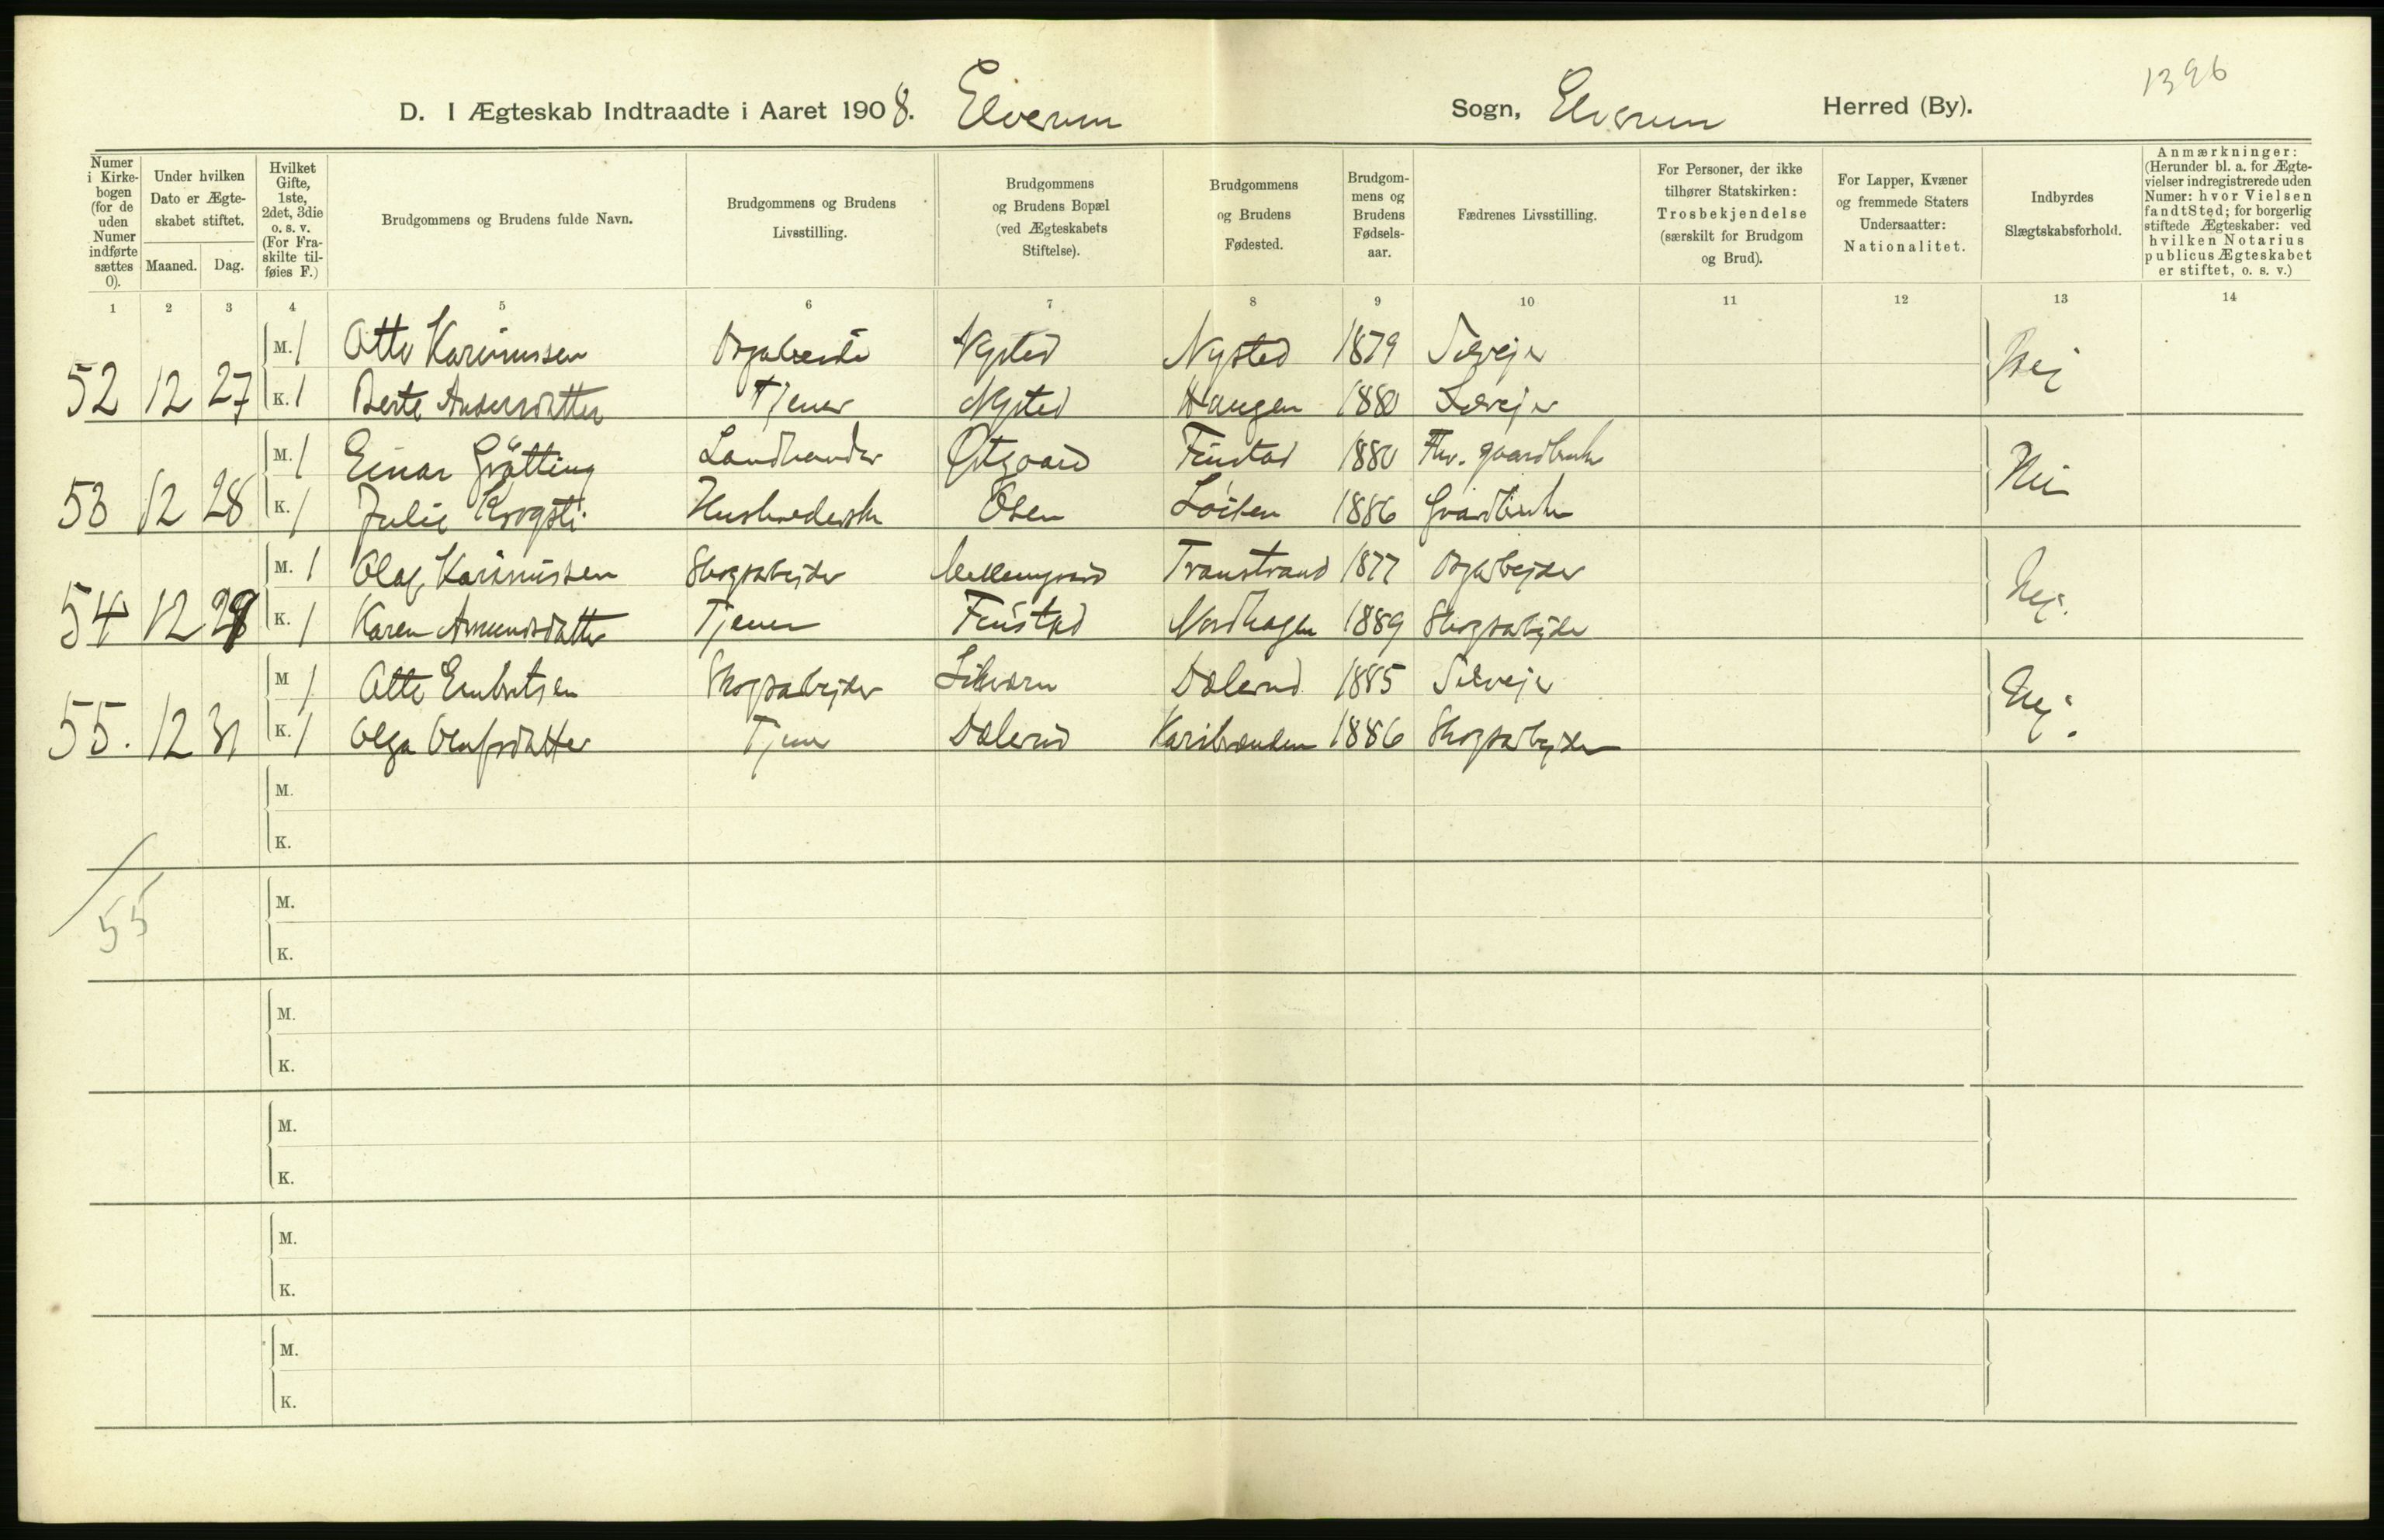 1396
D. I Ægteskab Indtraadte i Aaret 1908. Elverum Sogn, Elverum Herred (By).
Numer i Kirkebogen (for de uden Numer indførte sættes 0).
Under hvilken Dato er Ægteskabet stiftet.
Maaned. Dag.
Hvilket Gifte, 1ste, 2det, 3die o. s. v. (For Fraskilte tilføies F.)
Brudgommens og Brudens fulde Navn.
Brudgommens og Brudens Livsstilling.
Brudgommens og Brudens Bopæl (ved Ægteskabets Stiftelse).
Brudgommens og Brudens Fødested.
Brudgommens og Brudens Fødselsaar.
Fædrenes Livsstilling.
For Personer, der ikke tilhører Statskirken: Trosbekjendelse (særskilt for Brudgom og Brud).
For Lapper, Kvæner og fremmede Staters Undersaatter: Nationalitet.
Indbyrdes Slægtskabsforhold.
Anmærkninger: (Herunder bl. a. for Ægtevielser indregistrerede uden Numer: hvor Vielsen fandt Sted; for borgerlig stiftede Ægteskaber: ved hvilken Notarius publicus Ægteskabet er stiftet, o. s. v.)
1 2 3 4 5 6 7 8 9 10 11 12 13 14
M. 1 Otto Karinussen Nysted Nysted 1879 Selvejer Nei
52 12 27 K. 1 Berte Andersdatter Tjener Nysted Haugen 1880 Selvejer
M. 1 Einar Grøtting Landhandler Østgaard Finstad 1880 Fhv. gaardbruker Nei
53 12 28 K. 1 Julie Krogsti Husholderske Osen Løiten 1886 Gaardbruker
M. 1 Olaf Karinussen Skogsarbejder Mellemgaard Transtrand 1877 Nei.
54 12 29 K. 1 Karen Amundsdatter Tjener Finstad Nordhagen 1889 Skogsarbejder
M 1 Otto Embretsen Skogsarbejder Dølerud 1885 Selvejer Nej.
55. 12 31 K. 1 Olga Olufsdatter Tjener Dølerud 1886 Skogsarbejder
M.
K.
55
M.
K.
M.
K.
M.
K.
M.
K.
M.
K.